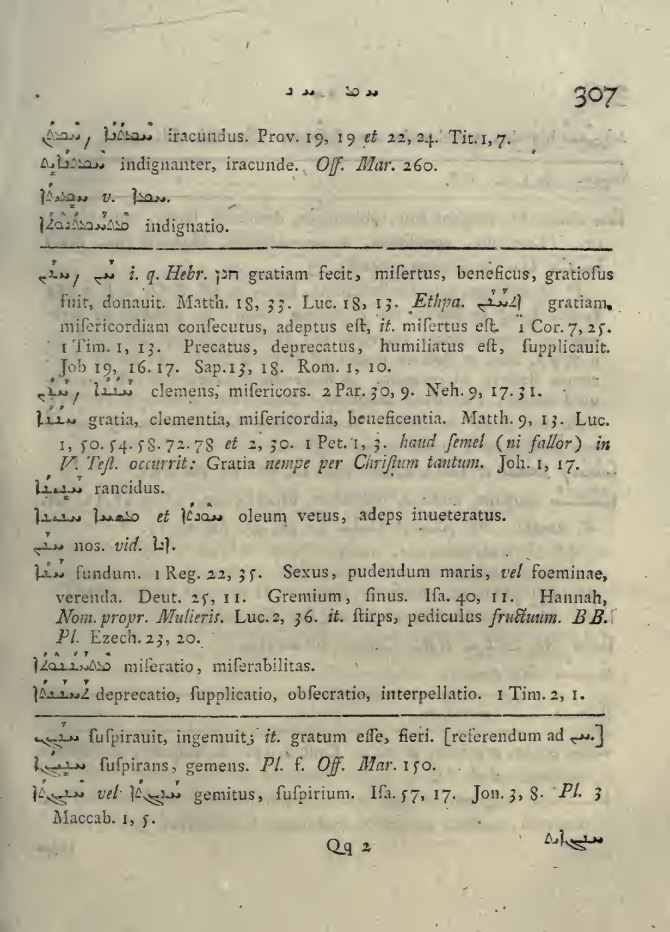 307
ܚܡܬܢ, ܚܡܬܢܐ iracundus. Prov. 19, 19 et 22, 24. Tit. 1, 7.
ܚܡܬܢܐܝܬ indignanter, iracunde. Off. Mar. 260.
v. ܚܡܐ.
ܡܬܚܡܬܢܘܬܐ indignatio.
ܚܢ, ܚܢܢ i. q. Hebr. חנן gratiam fecit, miſertus, beneficus, gratioſus
fuit, donauit. Matth. 18, 33. Luc. 18, 13. Ethpa. ܐܬܚܢܢ gratiam,
miſericordiam conſecutus, adeptus eſt, it. miſertus eſt. 1 Cor. 7, 25.
1 Tim. 1, 13. Precatus, deprecatus, humiliatus eſt, ſupplicauit.
Job 19, 16. 17. Sap. 13, 18. Rom. 1, 10.
ܚܢܢ, ܚܢܢܐ clemens, miſericors. 2 Par. 30, 9. Neh. 9, 17. 31.
ܚܢܢܐ gratia, clementia, miſericordia, beneficentia. Matth. 9, 13. Luc.
1, 50. 54. 58. 72. 78 et 2, 30. 1 Pet. 1, 3. haud ſemel (ni fallor) in
V. Teſt. occurrit: Gratia nempe per Chriſtum tantum. Joh. 1, 17.
ܚܢܝܢܐ rancidus.
ܡܫܚܐ ܚܢܝܢܐ et oleum vetus, adeps inueteratus.
ܚܢܢ nos. vid. ܐܢܐ.
ܚܢܐ fundum. 1 Reg. 22, 35. Sexus, pudendum maris, vel foeminae,
verenda. Deut. 25, 11. Gremium, ſinus. Iſa. 40, 11. Hannah,
Nom. propr. Mulieris. Luc. 2, 36. it. ſtirps, pediculus fructuum. BB.
Pl. Ezech. 23, 20.
ܡܬܚܢܢܘܬܐ miſeratio, miſerabilitas.
ܬܚܢܢܬܐ deprecatio, ſupplicatio, obſecratio, interpellatio. 1 Tim. 2, 1.
ܚܢܓ ſuſpirauit, ingemuit; it. gratum eſſe, fieri. [referendum ad ܚܢ.]
ܚܢܝܓܐ ſuſpirans, gemens. Pl. f. Off. Mar. 150.
ܚܢܝܓܬܐ vel ܚܢܓܬܐ gemitus, ſuſpirium. Iſa. 57, 17. Jon. 3, 8. Pl. 3
Maccab. 1, 5.
Qq 2
ܚܢܝܓܐܝܬ